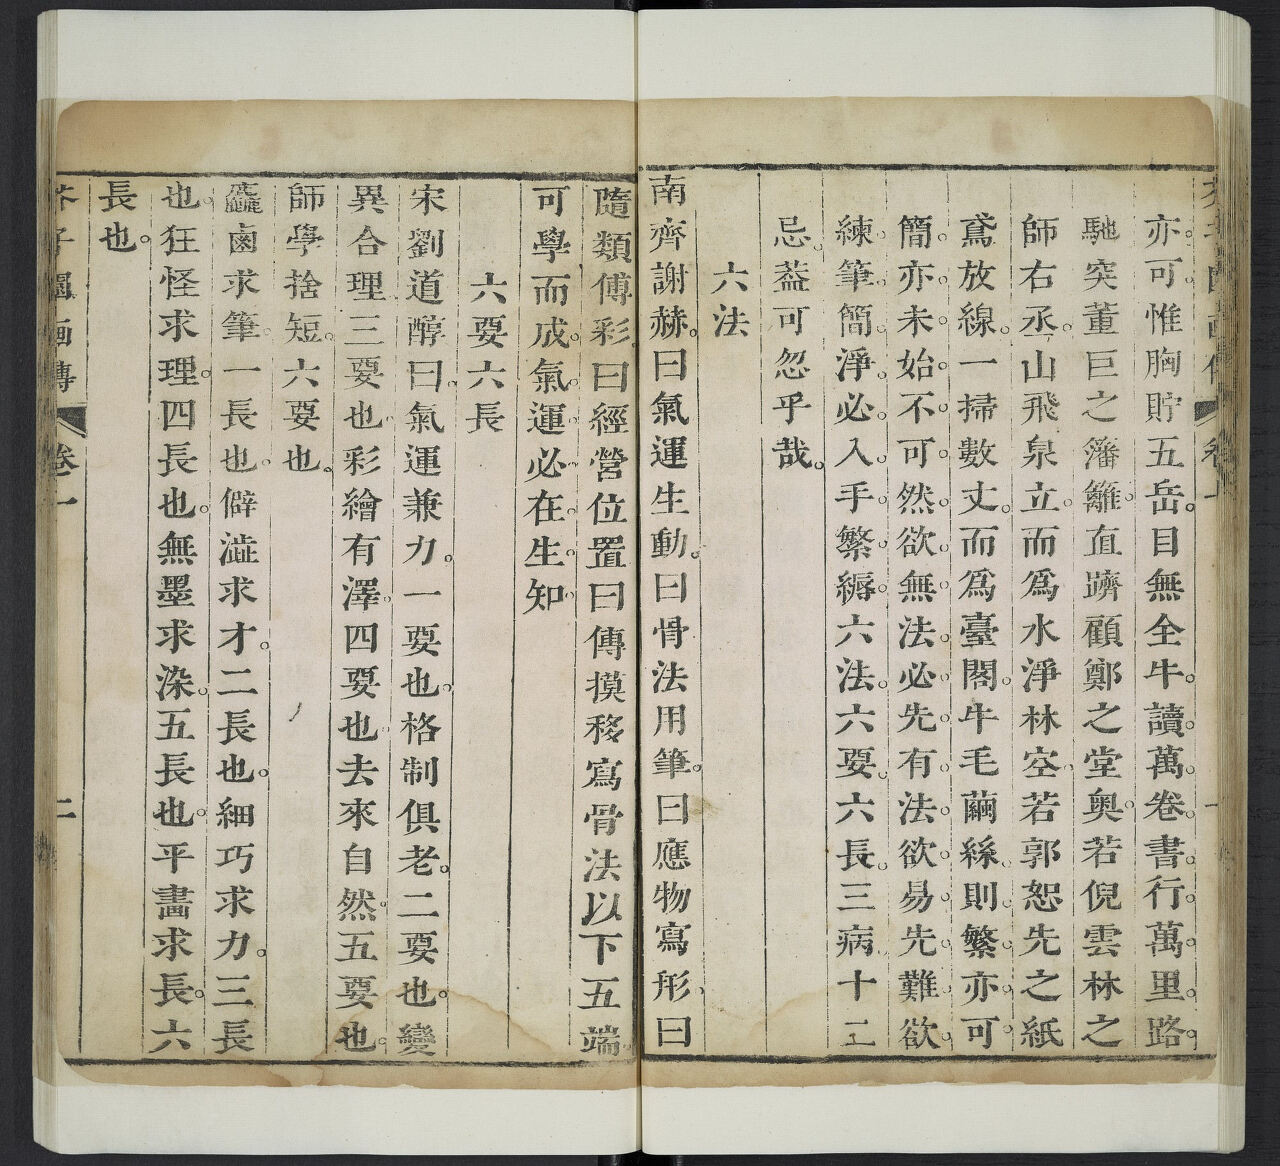 亦可惟胸貯五岳。目無全牛。讀萬卷書。行萬里路。
馳突董巨之籓籬。直躋顧鄭之堂奥。若倪雲林之
師右丞。山飛泉立。而爲水淨林空。若郭恕先之紙
鳶放線。一掃數丈。而爲臺閣。牛毛繭絲。則繁亦可。
簡亦未始不可。然欲無法。必先有法。欲易先難。欲
練筆簡淨。必入手繁縟。六法。六要。六長。三病。十二
忌。葢可忽乎哉。
六法
南齊謝赫。曰氣運生動。曰骨法用筆。曰應物寫形。曰
隨類傅彩。曰經營位置。曰傳摸移寫。骨法以下五端。
可學而成。氣運必在生知。
六要六長
宋劉道醇曰。氣運兼力。一要也。格制俱老。二要也。變
異合理。三要也。彩繪有澤。四要也。去來自然。五要也。
師學捨短。六要也。
麤鹵求筆。一長也。僻澁求才。二長也。細巧求力。三長
也。狂怪求理。四長也。無墨求染。五長也。平畫求長。六
長也。
芥子園畫傳
卷一
二